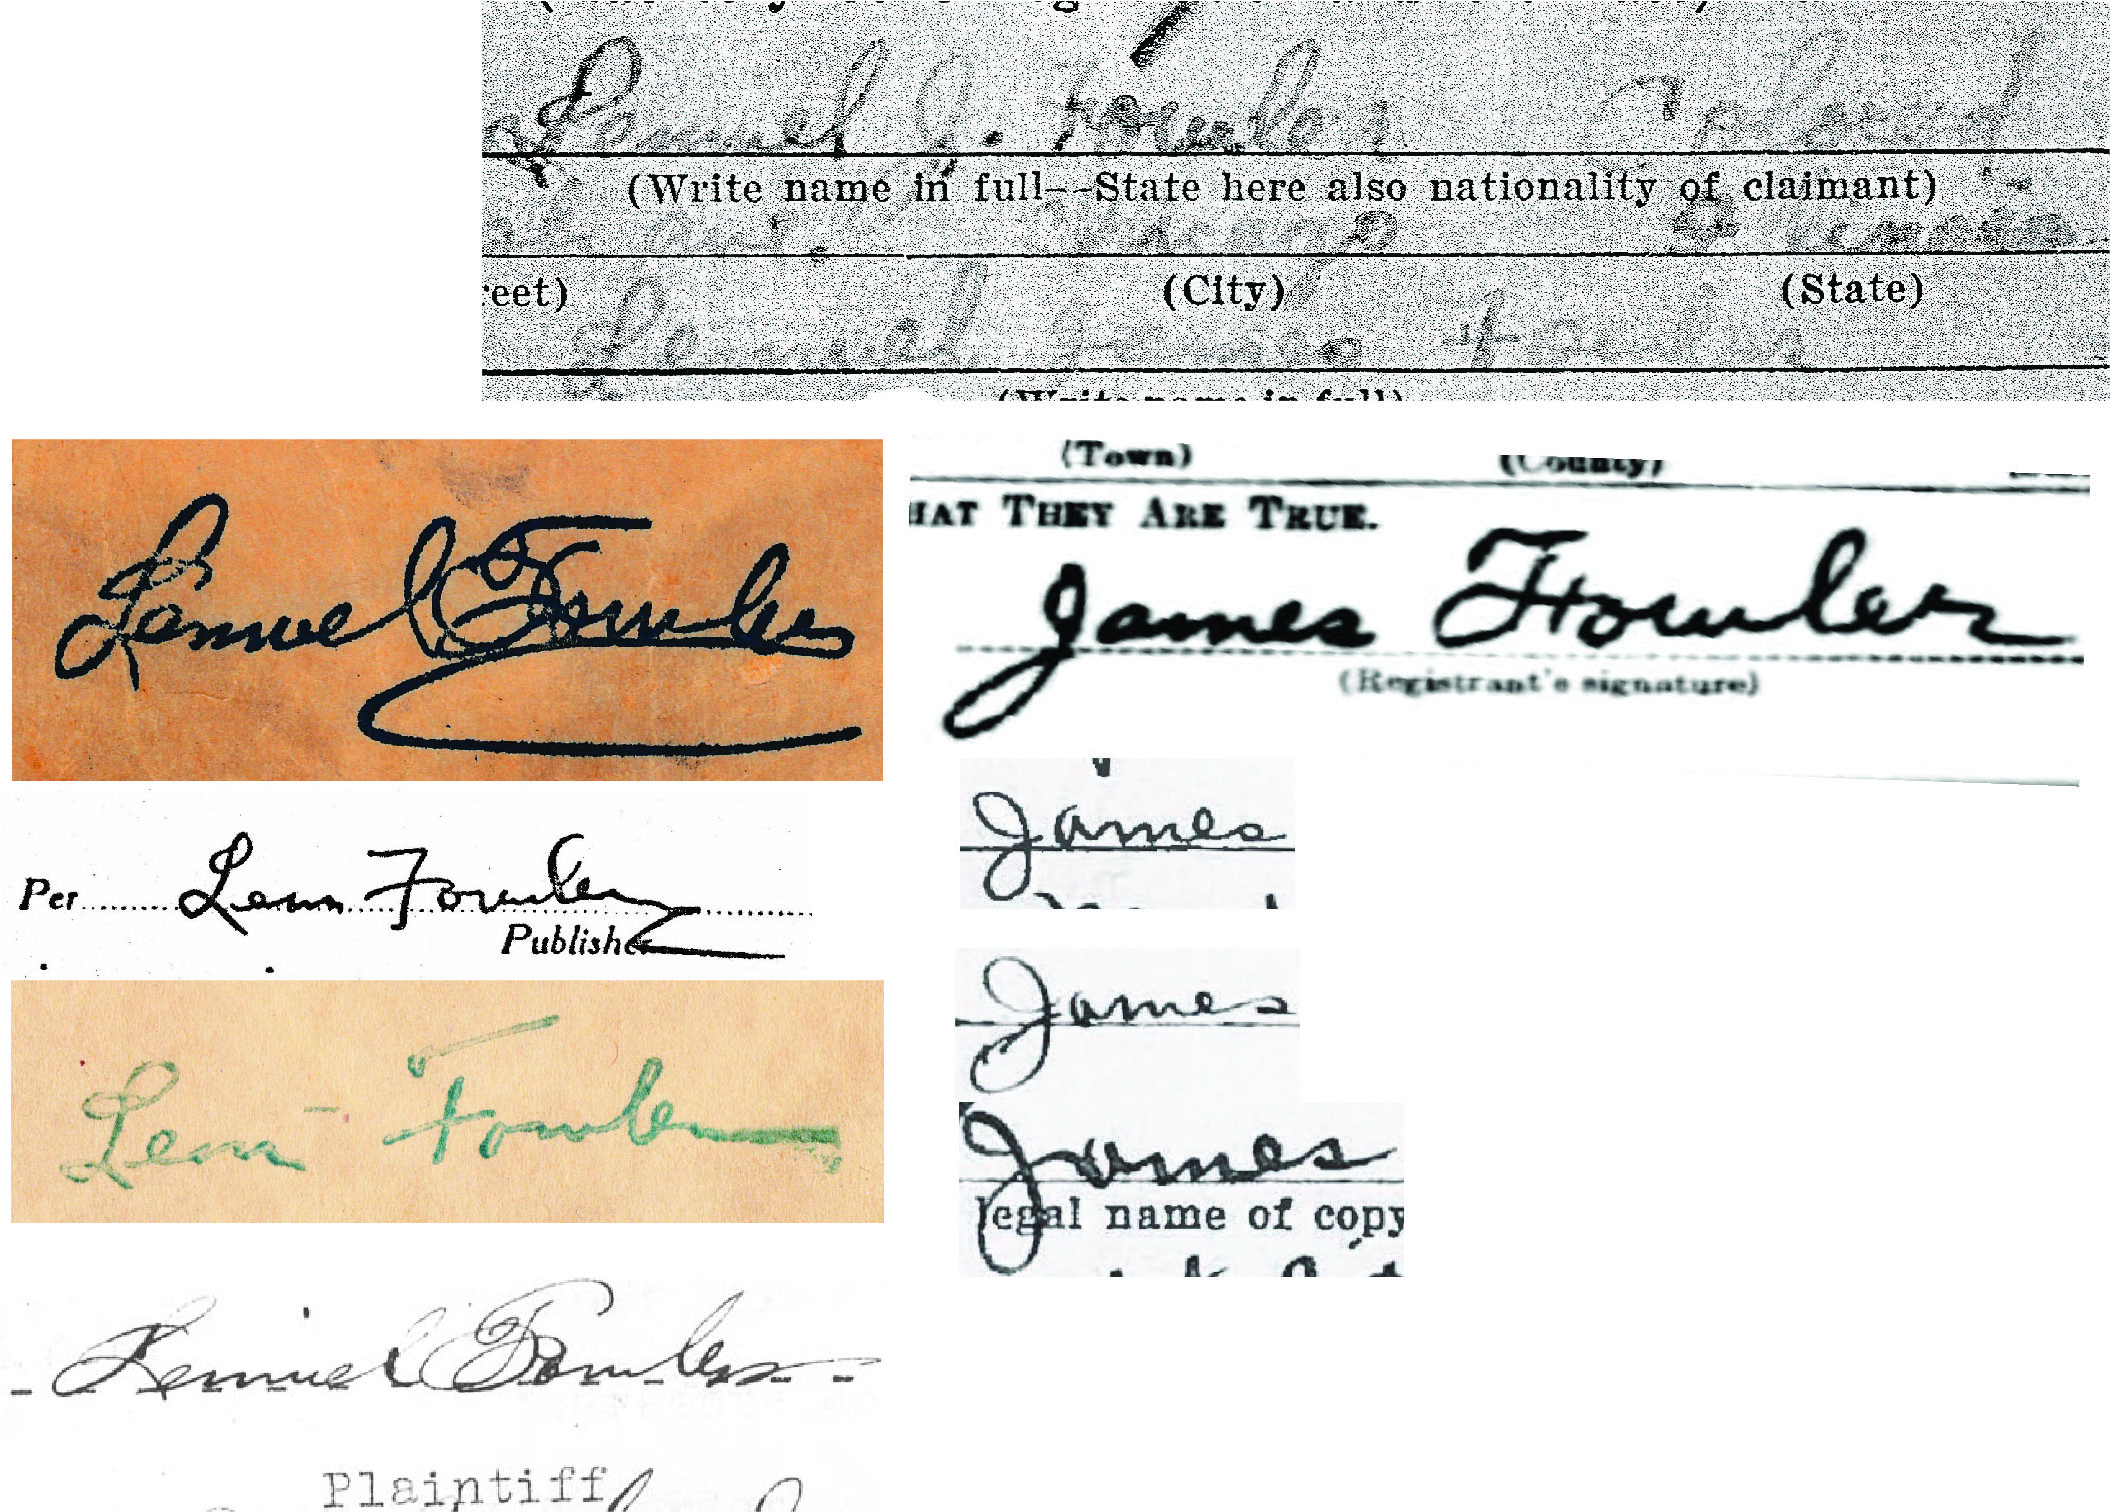 Lemuel J. Fowler
(Write name in full--State here also nationality of claimant)
(City) (State)
Lemuel James Fowler
(Write name in full)
Lemuel Fowler
Per Lem Fowler
Publisher
Lem Fowler
Lemuel Fowler
Plaintiff
(Town) (County)
HAT THEY ARE TRUE.
James Fowler
(Registrant's signature)
James
James
James
legal name of copy